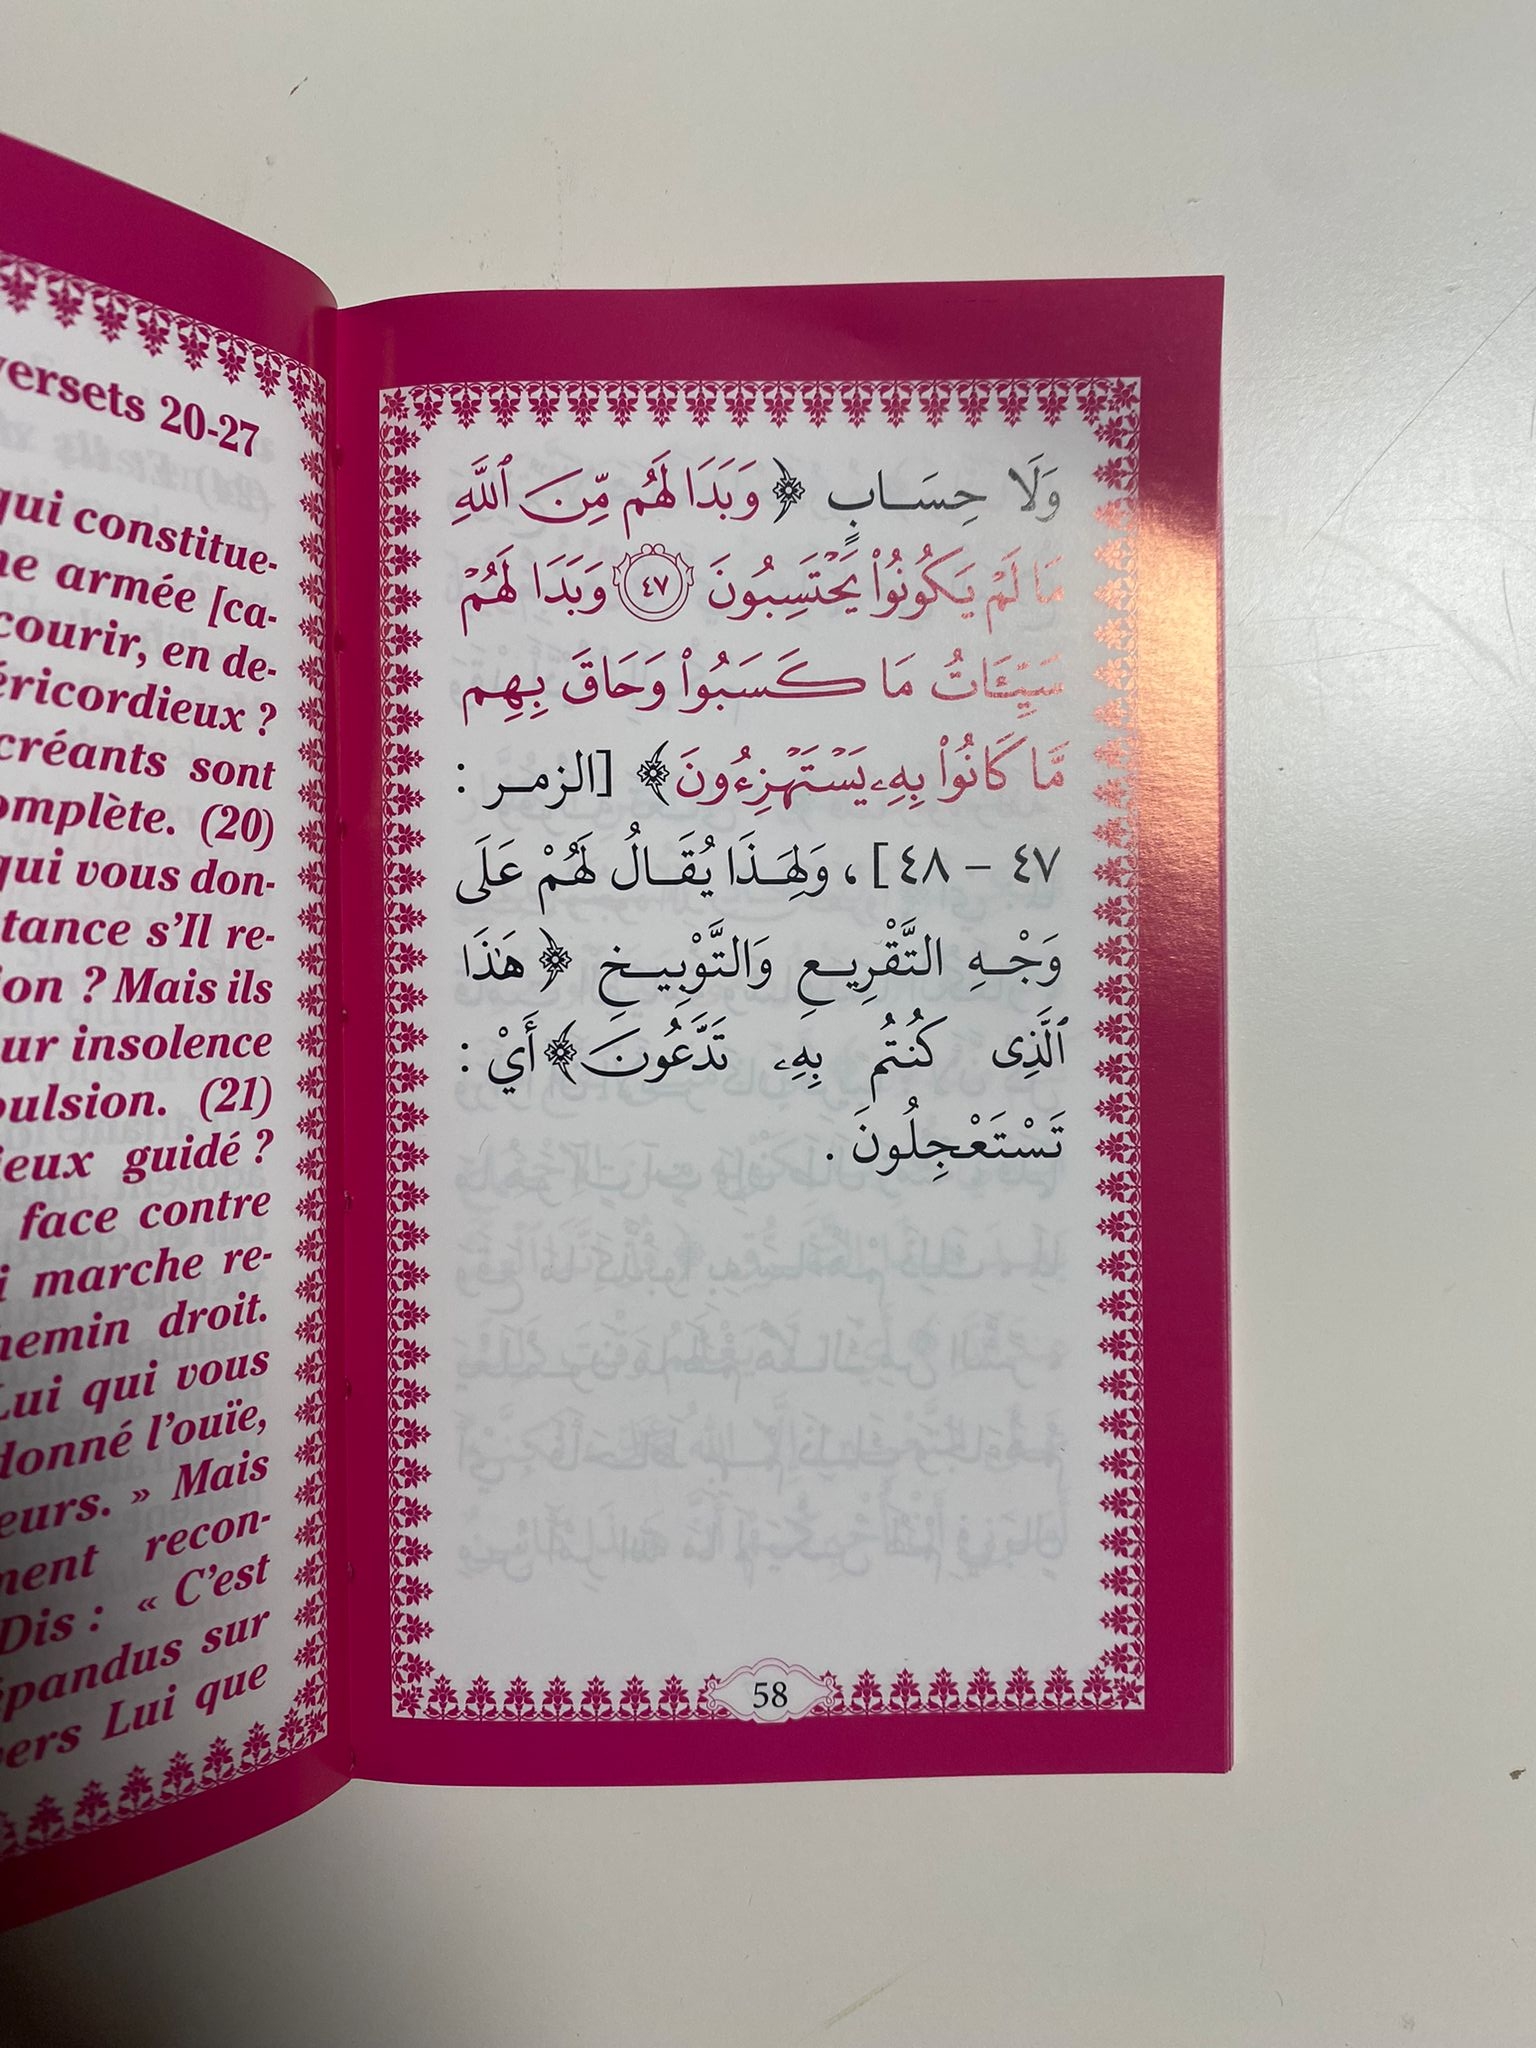 versets 20-27
qui constitue-
ne armée [ca-
courir, en de-
éricordieux ?
créants sont
omplète. (20)
qui vous don-
tance s'Il re-
ion ? Mais ils
ur insolence
pulsion. (21)
ieux guidé ?
face contre
i marche re-
hemin droit.
Lui qui vous
donné l'ouïe,
eurs. » Mais
ment recon-
Dis : « C'est
épandus sur
vers Lui que
وَلَا حِسَـابٍ ﴿ وَبَدَا لَهُم مِّنَ ٱللَّهِ
مَا لَمْ يَكُونُوا۟ يَحْتَسِبُونَ ٤٧ وَبَدَا لَهُمْ
سَيِّـَٔاتُ مَا كَسَبُوا۟ وَحَاقَ بِهِم
مَّا كَانُوا۟ بِهِۦ يَسْتَهْزِءُونَ ﴾ [الزمـر :
٤٧ – ٤٨] ، وَلِهَـذَا يُقَـالُ لَهُمْ عَلَى
وَجْـهِ التَّقْرِيـعِ وَالتَّوْبِيـخِ ﴿ هَٰذَا
ٱلَّذِى كُنتُم بِهِۦ تَدَّعُونَ ﴾ أَيْ :
تَسْتَعْجِلُونَ .
58